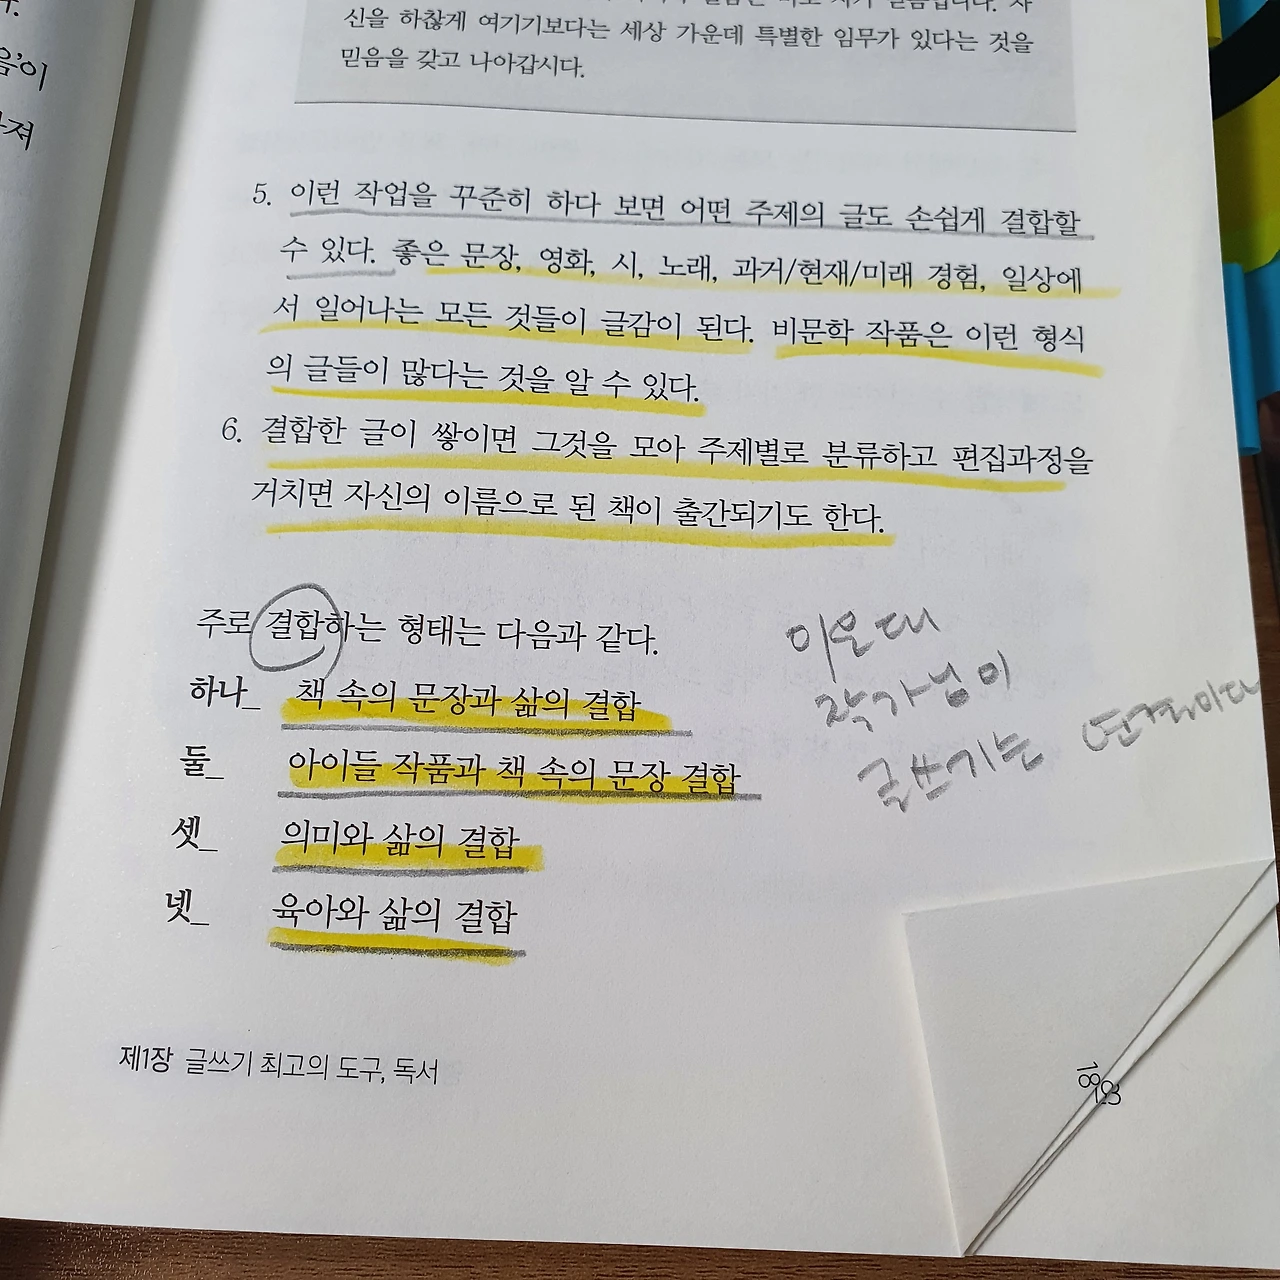 음'이
가져
신을 하찮게 여기기보다는 세상 가운데 특별한 임무가 있다는 것을
믿음을 갖고 나아갑시다.
5. 이런 작업을 꾸준히 하다 보면 어떤 주제의 글도 손쉽게 결합할
수 있다. 좋은 문장, 영화, 시, 노래, 과거/현재/미래 경험, 일상에
서 일어나는 모든 것들이 글감이 된다. 비문학 작품은 이런 형식
의 글들이 많다는 것을 알 수 있다.
6. 결합한 글이 쌓이면 그것을 모아 주제별로 분류하고 편집과정을
거치면 자신의 이름으로 된 책이 출간되기도 한다.
주로 결합하는 형태는 다음과 같다.
하나_ 책 속의 문장과 삶의 결합
둘_ 아이들 작품과 책 속의 문장 결합
셋_ 의미와 삶의 결합
넷_ 육아와 삶의 결합
이오대
작가님이
글쓰기는
제1장 글쓰기 최고의 도구, 독서